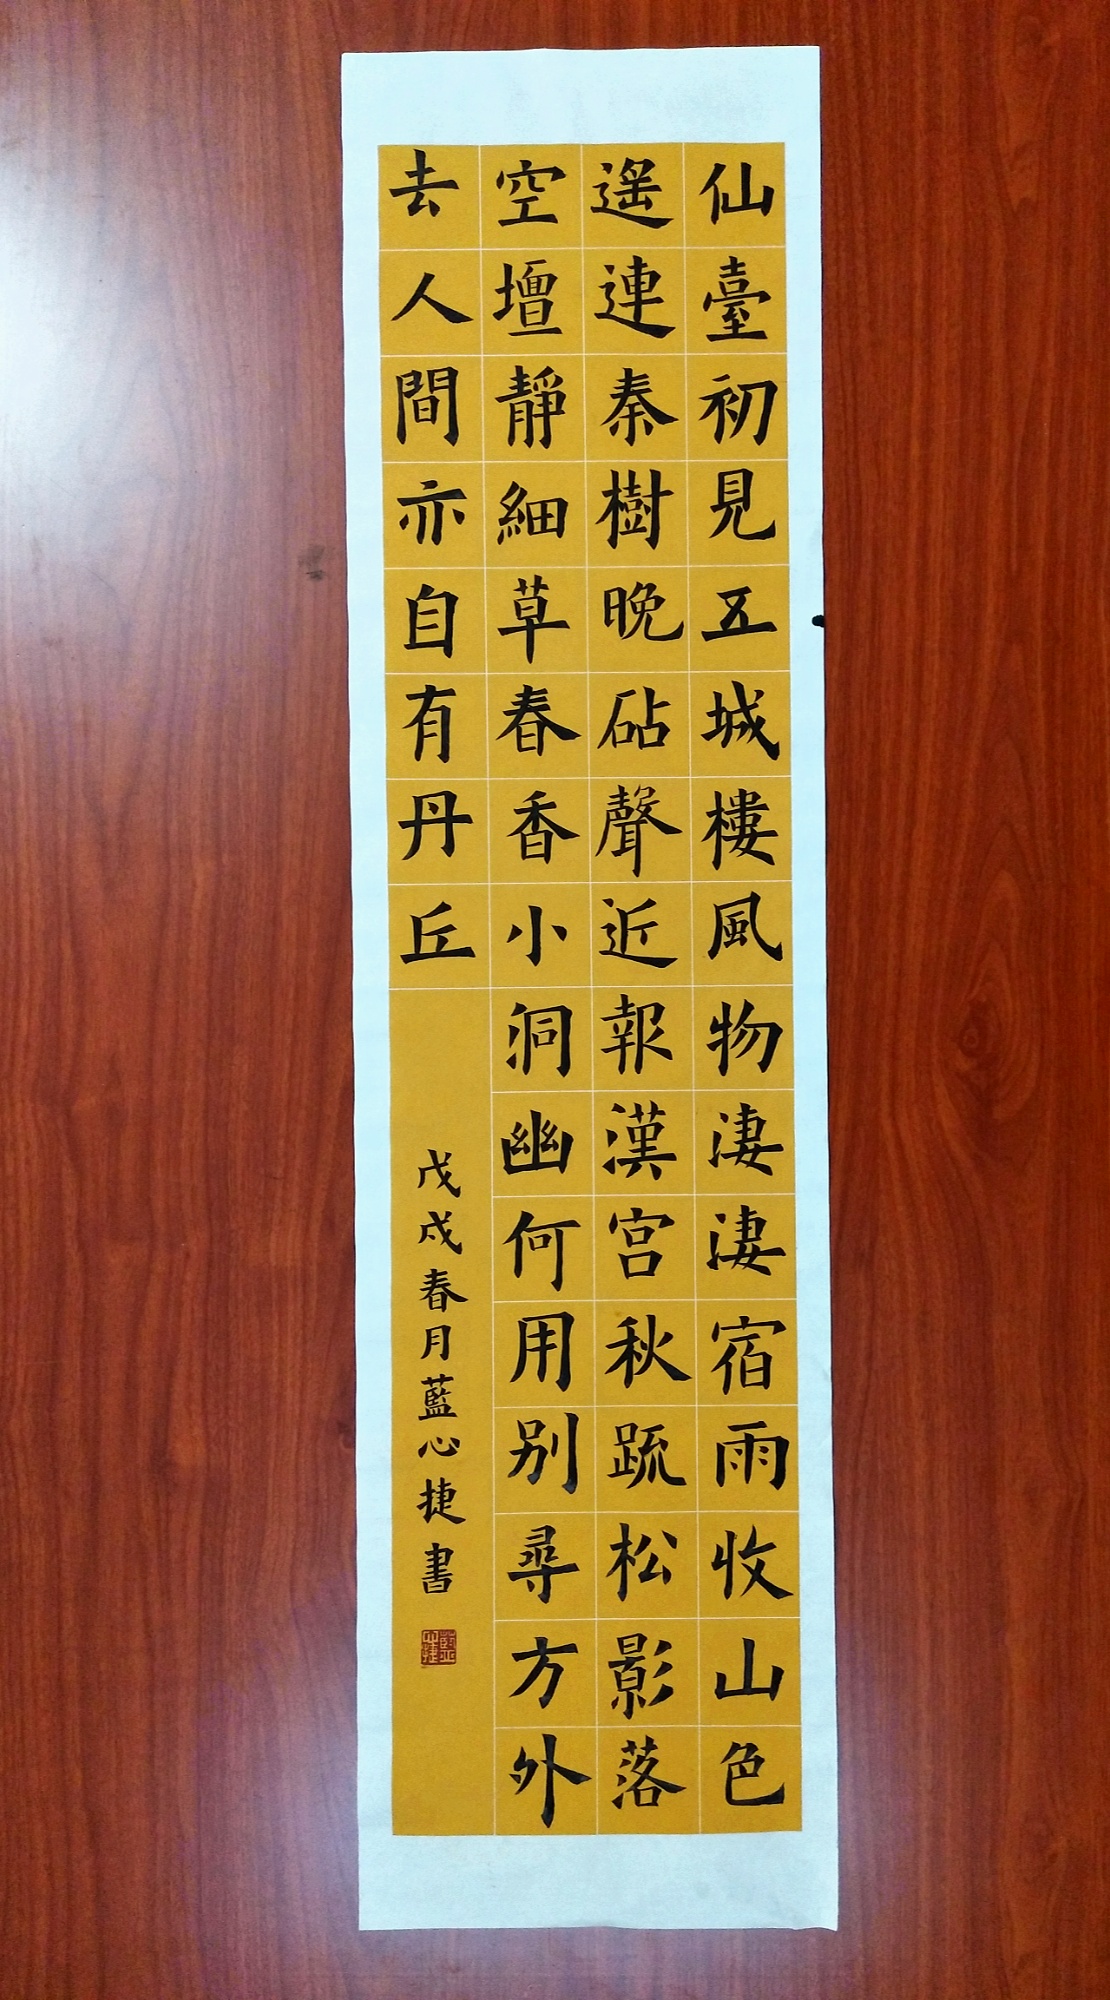 仙臺初見五城樓風物淒淒宿雨收山色
遥連秦樹晚砧聲近報漢宮秋疏松影落
空壇靜細草春香小洞幽何用别尋方外
去人間亦自有丹丘
戊戌春月藍心捷書